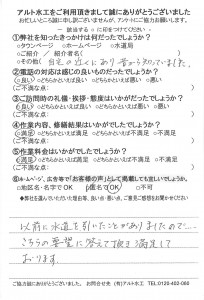 アルト水工をご利用頂きまして誠にありがとうございました
お忙しいところ誠に申し訳ございませんが、アルトにご協力お願いします。
該当する○に印をつけてください
①弊社を知ったきっかけは何だったでしょうか?
○タウンページ ○ホームページ ○水道局
○ご紹介/紹介者名(
○その他( 自宅の近くにあり昔から知っていました。
②電話の対応は感じの良いものだったでしょうか?
○良い ○どちらかといえば良い ○どちらかといえば悪い ○悪い
ご不満な点:
③ご訪問時の礼儀・挨拶・態度はいかがだったでしょうか?
○良い ○どちらかといえば良い ○どちらかといえば悪い ○悪い
ご不満な点:
④作業内容、修繕結果はいかがでしたでしょうか?
○満足 ○どちらかといえば満足 ○どちらかといえば不満足 ○不満足
ご不満な点:
⑤作業料金はいかがでしたでしょうか?
○満足 ○どちらかといえば満足 ○どちらかといえば不満足 ○不満足
ご不満な点:
⑥ホームページ、広告等で「お客様の声」として掲載しても宜しいでしょうか。
○地区名・名字でOK ○匿名でOK ○不可
◆弊社を選んでいただいた理由、良い点・悪い点、ご意見ご感想をお聞かせください
以前に水道を引いたことがありましたので…
こちらの要望に答えて頂き満足して
おります。
ご協力誠にありがとうございました。 お問合せ先 (有)アルト水工 TEL.0120-402-080